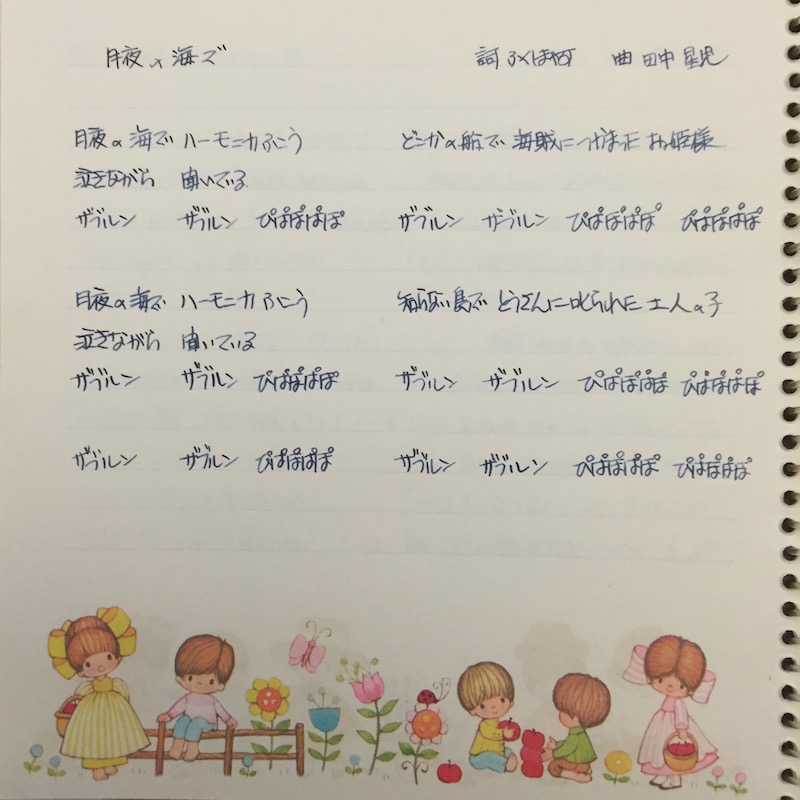 月夜の海で 詞 ふくは何 曲 田中星児
月夜の海で ハーモニカふこう どこかの船で 海賊につかまった お姫様
泣きながら 聞いている
ザブルン ザブルン ぴぱぽぱぽ ザブルン ザブルン ぴぱぽぱぽ ぴぱぽぱぽ
月夜の海で ハーモニカふこう 知らない島で とうさんに叱られた 土人の子
泣きながら 聞いている
ザブルン ザブルン ぴぱぽぱぽ ザブルン ザブルン ぴぱぽぱぽ ぴぱぽぱぽ
ザブルン ザブルン ぴぱぽぱぽ ザブルン ザブルン ぴぱぽぱぽ ぴぱぽぱぽ